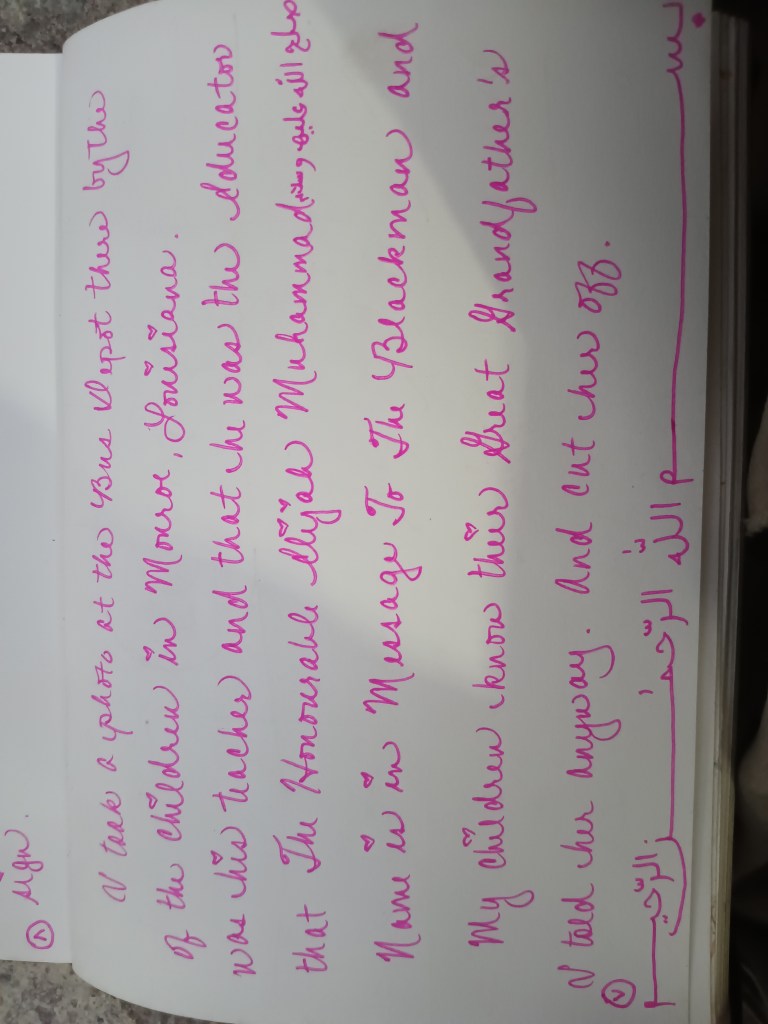 بسم الله الرّحمٰن الرّحيم
I told her anyway. And cut her off.
My children know their Great Grandfather's
Name is in Message To The Blackman and
that The Honourable Elijah Muhammad صلى الله عليه وسلم
was his teacher and that he was the Educator
of the children in Monroe, Louisiana.
I took a photo at the Bus Depot there by the
sign.